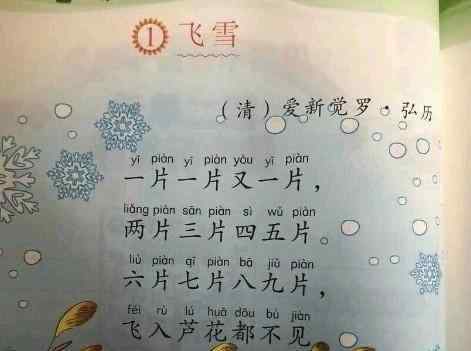 1 飞雪
(清) 爱新觉罗·弘历
yí piàn yí piàn yòu yí piàn
一片一片又一片，
liǎng piàn sān piàn sì wǔ piàn
两片三片四五片。
liù piàn qī piàn bā jiǔ piàn
六片七片八九片，
fēi rù lú huā dōu bú jiàn
飞入芦花都不见